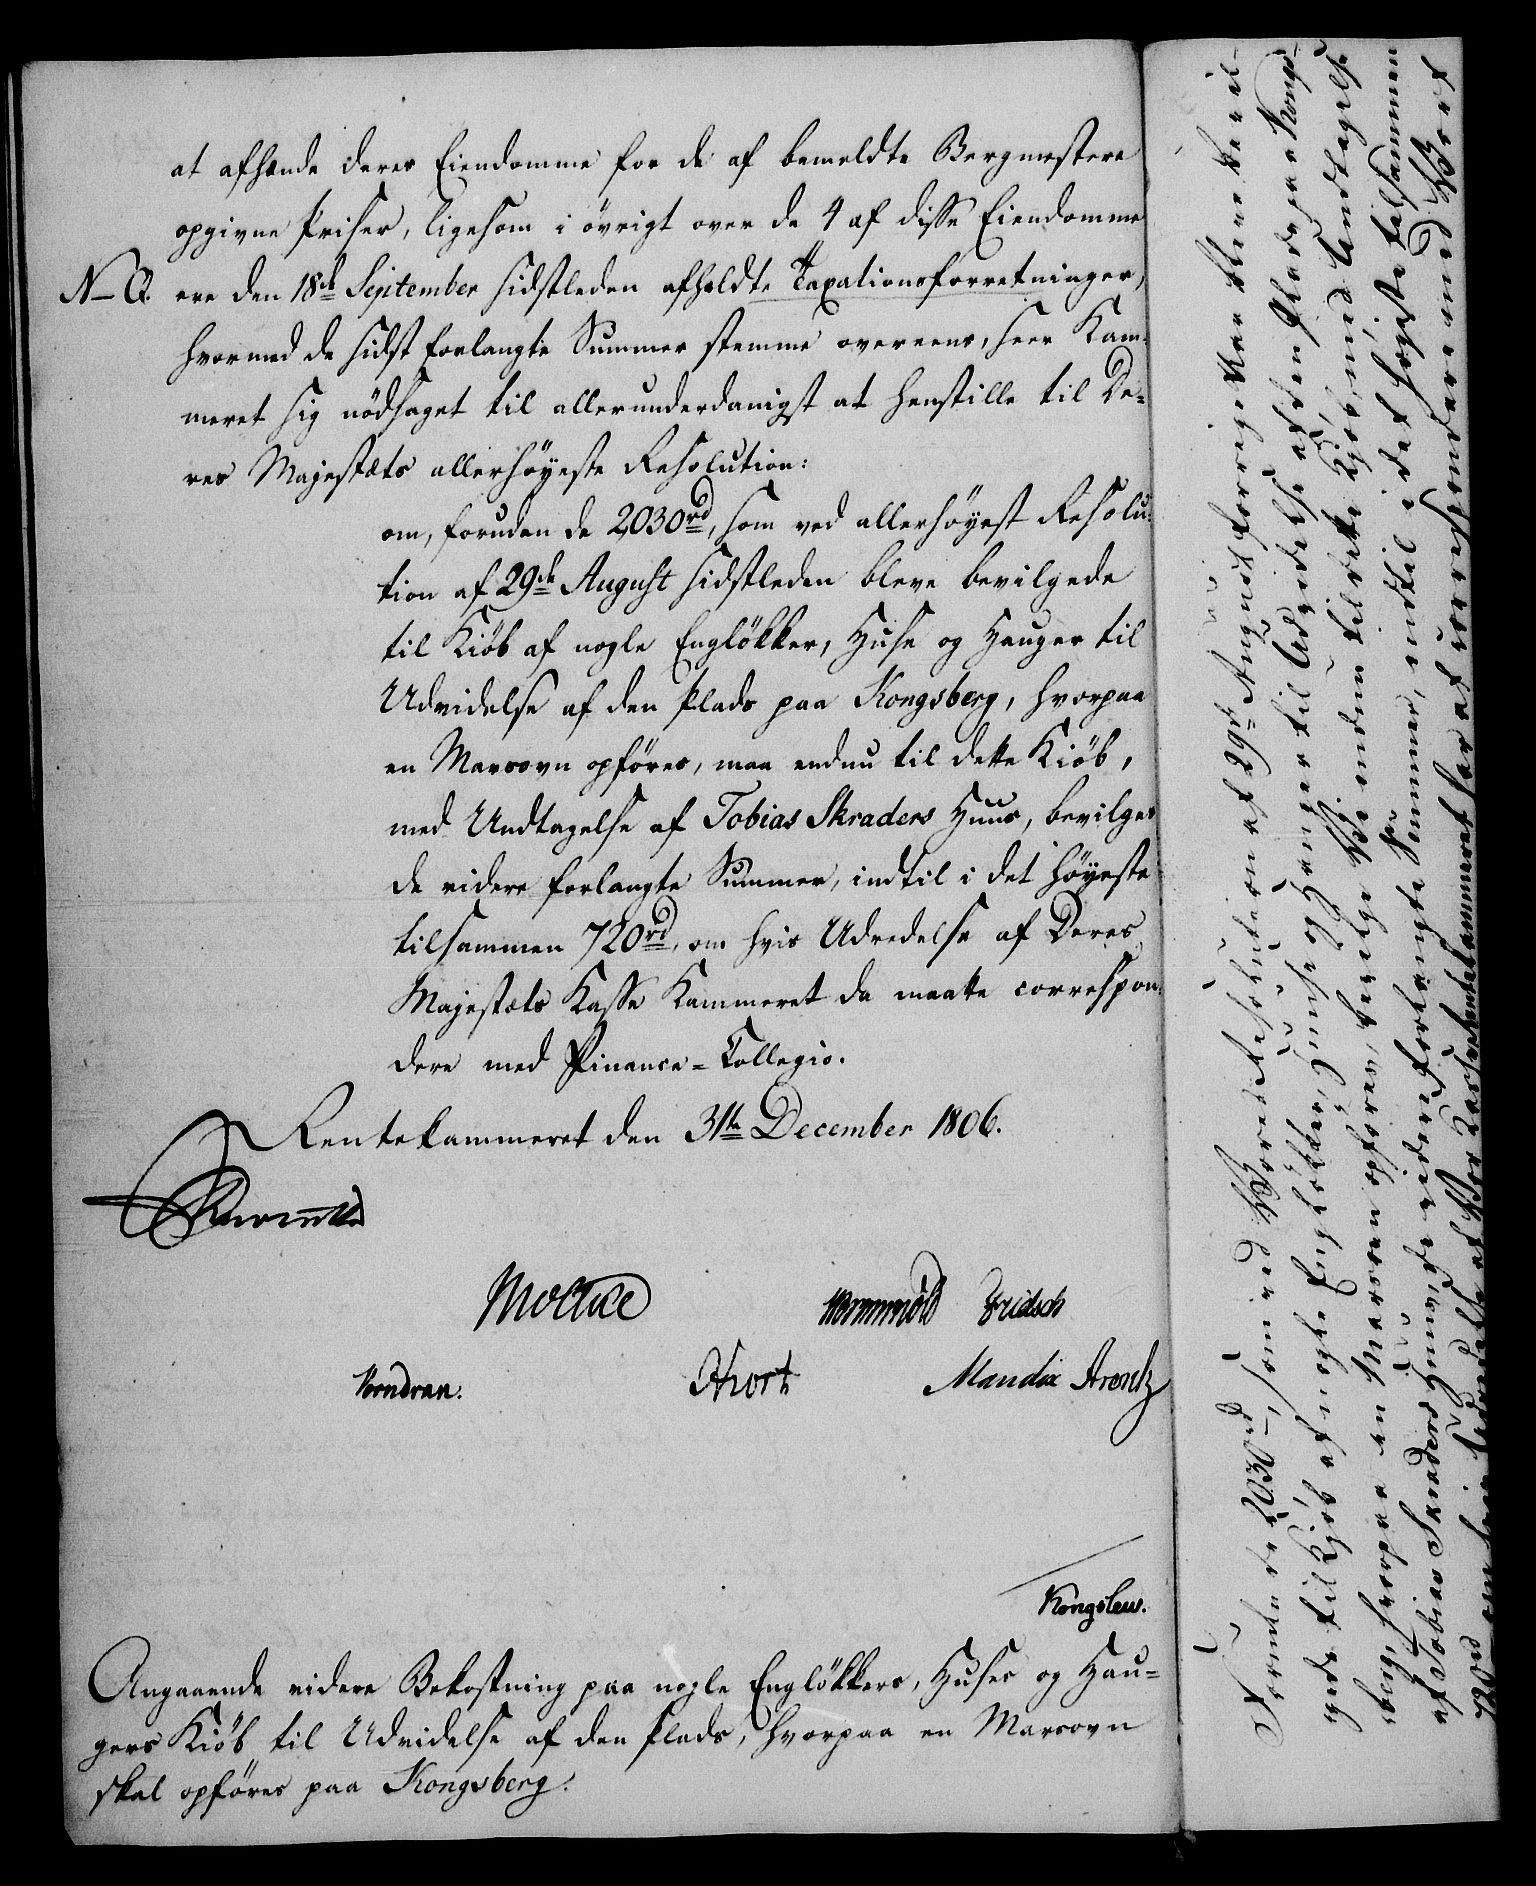 at afhænde deres Eiendomme for de af bemeldte Bergmestere
opgivne Priser, ligesom i övrigt over de 4 af disse Eiendomme
N–Q. ere den 18de September sidstleden afholdte Taxationsforretninger,
hvormed de sidst forlangte Summer stemme overeens, seer Kam-
meret sig nödsaget til allerunderdanigst at henstille til De-
res Majestæts allerhöyeste Resolution:
om, foruden de 2030rd, som ved allerhöyest Resolu-
tion af 29de August sidstleden bleve bevilgede
til Kiöb af nogle Englökker, Huse og Hauger til
Udvidelse af den Plads paa Kongsberg, hvorpaa
en Marsovn opföres, maa endnu til dette Kiöb,
med Undtagelse af Tobias Skraders Huus, bevilges
de videre forlangte Summer, indtil i det höyeste
tilsammen 720rd, om hvis Udredelse af Deres
Majestæts Kasse Kammeret da maatte correspon-
dere med Finance-Collegio.
Rentekammeret den 31te December 1806.
Moltke
Wormskiold Fridsch
Vorndran.
Hiort
Mandix Arentz
Kongslew.
Angaaende videre Bekostning paa nogle Englökkers, Huses og Hau-
gers Kiöb til Udvidelse af den Plads, hvorpaa en Marsovn
skal opföres paa Kongsberg.
Foruden de 2030rd, som ved Vores Resolution af 29de August forrige Aar bleve bevil-
gede til Kjöb af nogle Englökker, Huuse og Hauger til Udvidelse af den Plads paa Kongs-
berg, hvorpaa en Marsovn opföres, bevilge Vi endnu til dette Kjöb, med Undtagelse
af Tobias Skraders Huus, de videre forlangte Summer, indtil i det höjeste tilsammen
720rd, om hvis Udredelse af Vor Kasse Rentekammeret har at correspondere med Vort